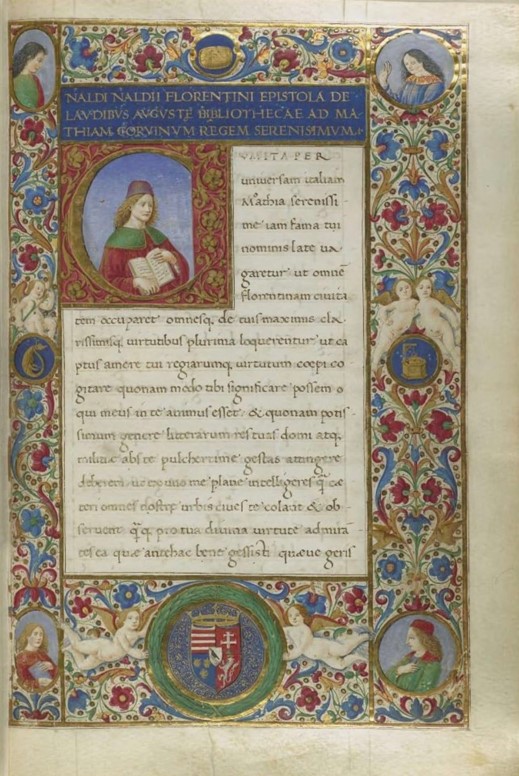 NALDI NALDII FLORENTINI EPISTOLA DE
LAVDIBVS AVGVSTE BIBLIOTHECAE AD MA
THIAM CORVINVM REGEM SERENISSIMVM.
VM ITA PER
universam italiam
Mathia serenissi
me iam fama tui
nominis late va
garetur ut omnē
florentinam civita
tem occuparet omnesq; de tuis maximis cla
rissimisq; virtutibus plurima loquerentur ut ca
ptus amore tui regiarumq; virtutum coepi co
gitare quonam modo tibi significare possem q
qui meus in te animus esset & quonam potis
simum genere litterarum res tuas domi atq;
militiae abs te pulcherrime gestas attingere
deberem ut ex quo me plane intelligeres q̄ cae
teri omnes nostrae urbis cives te colant & ob
servent q̄q; pro tua divina virtute admirā
tes ea quae antehac bene gessisti quaeve geris